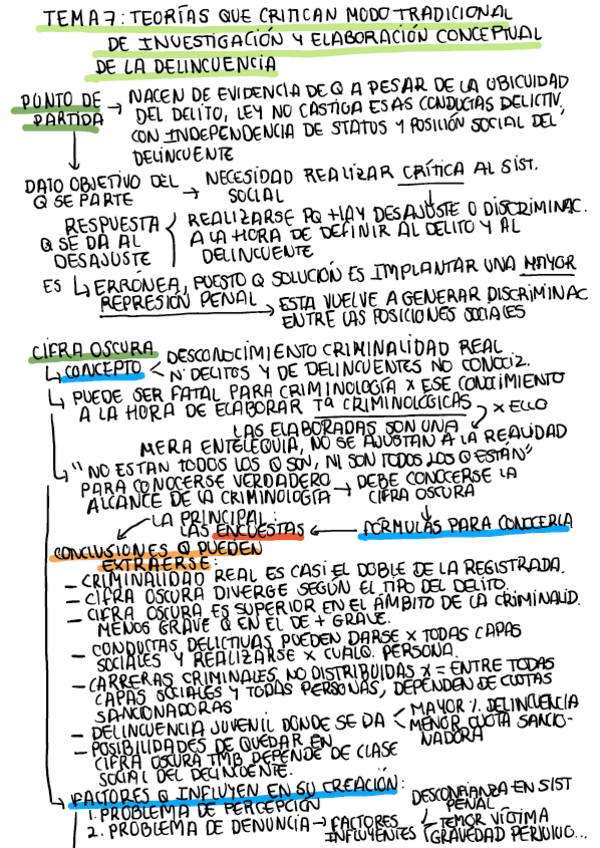 TEMA 7: TEORÍAS QUE CRITICAN MODO TRADICIONAL
DE INVESTIGACIÓN Y ELABORACIÓN CONCEPTUAL
DE LA DELINCUENCIA
PUNTO DE PARTIDA → NACEN DE EVIDENCIA DE Q A PESAR DE LA UBICUIDAD
DEL DELITO, LEY NO CASTIGA ESAS CONDUCTAS DELICTIV,
CON INDEPENDENCIA DE STATUS Y POSICIÓN SOCIAL DEL
DELINCUENTE
DATO OBJETIVO DEL Q SE PARTE → NECESIDAD REALIZAR CRÍTICA AL SIST.
SOCIAL
RESPUESTA Q SE DA AL DESAJUSTE
REALIZARSE PQ HAY DESAJUSTE O DISCRIMINAC.
A LA HORA DE DEFINIR AL DELITO Y AL
DELINCUENTE
ES ↳ ERRÓNEA, PUESTO Q SOLUCIÓN ES IMPLANTAR UNA MAYOR
REPRESIÓN PENAL → ESTA VUELVE A GENERAR DISCRIMINAC
ENTRE LAS POSICIONES SOCIALES
CIFRA OSCURA
↳ CONCEPTO < DESCONOCIMIENTO CRIMINALIDAD REAL
Nº DELITOS Y DE DELINCUENTES NO CONOCIZ.
↳ PUEDE SER FATAL PARA CRIMINOLOGÍA X ESE CONOCIMIENTO
A LA HORA DE ELABORAR Tª CRIMINOLÓGICAS
X ELLO
LAS ELABORADAS SON UNA
MERA ENTELEQUIA, NO SE AJUSTAN A LA REALIDAD
↳ "NO ESTAN TODOS LOS Q SON, NI SON TODOS LOS Q ESTÁN"
PARA CONOCERSE VERDADERO
ALCANCE DE LA CRIMINOLOGÍA → DEBE CONOCERSE LA
CIFRA OSCURA
FÓRMULAS PARA CONOCERLA
LA PRINCIPAL:
LAS ENCUESTAS
CONCLUSIONES Q PUEDEN
EXTRAERSE:
– CRIMINALIDAD REAL ES CASI EL DOBLE DE LA REGISTRADA.
– CIFRA OSCURA DIVERGE SEGÚN EL TIPO DEL DELITO.
– CIFRA OSCURA ES SUPERIOR EN EL ÁMBITO DE LA CRIMINALID.
MENOS GRAVE Q EN EL DE + GRAVE.
– CONDUCTAS DELICTIVAS PUEDEN DARSE X TODAS CAPAS
SOCIALES Y REALIZARSE X CUALQ. PERSONA.
– CARRERAS CRIMINALES NO DISTRIBUIDAS X = ENTRE TODAS
CAPAS SOCIALES Y TODAS PERSONAS, DEPENDEN DE CUOTAS
SANCIONADORAS
– DELINCUENCIA JUVENIL DONDE SE DA < MAYOR % DELINCUENCIA
MENOR CUOTA SANCIO-
NADORA
– POSIBILIDADES DE QUEDAR EN
CIFRA OSCURA TMB DEPENDE DE CLASE
SOCIAL DEL DELINCUENTE.
↳ FACTORES Q INFLUYEN EN SU CREACIÓN:
1. PROBLEMA DE PERCEPCIÓN
2. PROBLEMA DE DENUNCIA → FACTORES
INFLUYENTES
DESCONFIANZA EN SIST
PENAL
TEMOR VÍCTIMA
GRAVEDAD PERJUICIO...